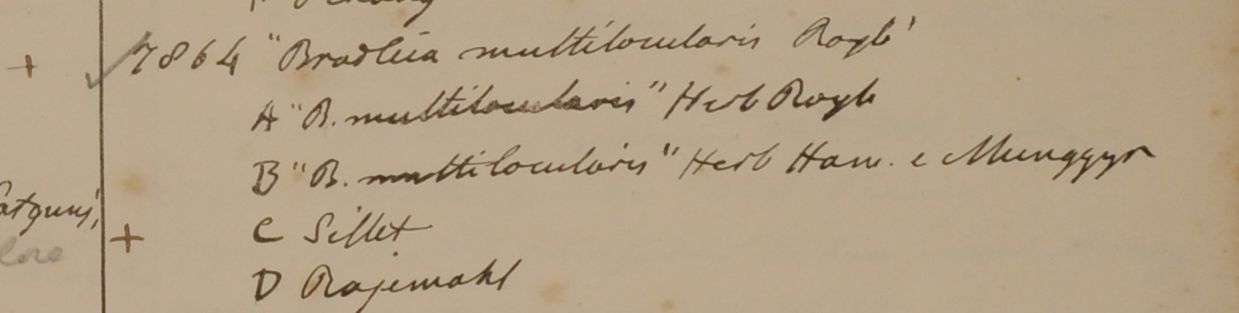 7864 "Bradleia multilocularis Roxb"
A "B. multilocularis" Herb Roxb
B "B. multilocularis" Herb Ham. e Mungger
+ C Sillet
D Rajemahl